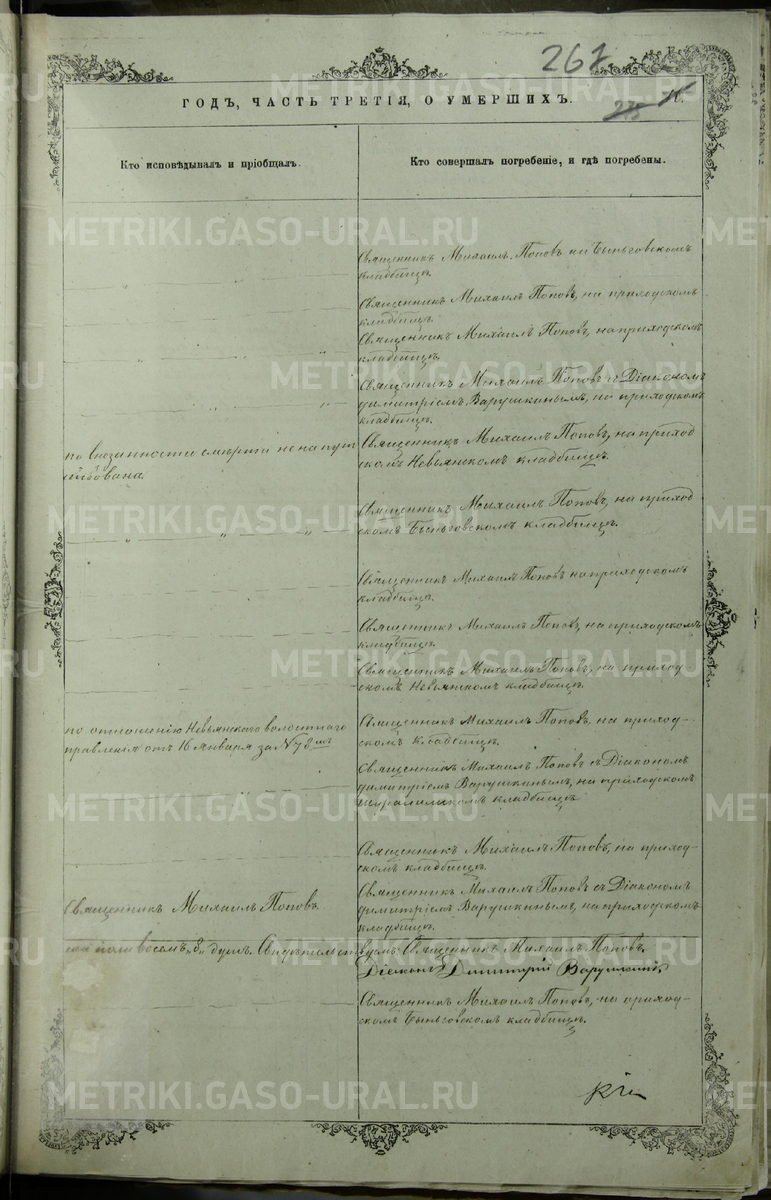 267
275
ГОДЪ, ЧАСТЬ ТРЕТІЯ, О УМЕРШИХЪ.
Кто исповѣдывалъ и пріобщалъ.
Кто совершалъ погребеніе, и гдѣ погребены.
Священникъ Михаилъ Поповъ на Быньговскомъ
кладбищѣ.
Священникъ Михаилъ Поповъ, на приходскомъ
кладбищѣ.
Священникъ Михаилъ Поповъ, на приходскомъ
кладбищѣ.
Священникъ Михаилъ Поповъ съ Діакономъ
Димитріемъ Варушкинымъ, на приходскомъ
кладбищѣ.
по внезапности смерти не напут
ствована.
Священникъ Михаилъ Поповъ, на приход
скомъ Невьянскомъ кладбищѣ.
Священникъ Михаилъ Поповъ, на приход
скомъ Быньговскомъ кладбищѣ.
Священникъ Михаилъ Поповъ на приходскомъ
кладбищѣ.
Священникъ Михаилъ Поповъ, на приходскомъ
кладбищѣ.
Священникъ Михаилъ Поповъ, на приход-
скомъ Невьянскомъ кладбищѣ.
по отношенію Невьянскаго волостнаго
правленія отъ 16 Января за № 78мъ
Священникъ Михаилъ Поповъ, на приход-
скомъ кладбищѣ.
Священникъ Михаилъ Поповъ съ Діакономъ
Димитріемъ Варушкинымъ, на приходскомъ
кладбищѣ
Священникъ Михаилъ Поповъ, на приход-
скомъ кладбищѣ.
Священникъ Михаилъ Поповъ.
Священникъ Михаилъ Поповъ съ Діакономъ
Димитріемъ Варушкинымъ, на приходскомъ
кладбищѣ.
пола восемь „8„ душъ. Свидѣтельствуемъ Священникъ Михаилъ Поповъ.
Діаконъ Димитрій Варушкинъ
Священникъ Михаилъ Поповъ, на приход-
скомъ Быньговскомъ кладбищѣ.
METRIKI.GASO-URAL.RU